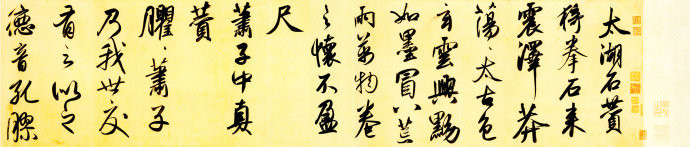 太湖石贊
猗拳石來
震澤莽
蕩〻太古色
玄雲興黝
如墨冒八荒
雨萬物卷
之懷不盈
尺
蕭子中真
贊
臞〻蕭子
乃我世交
有之似之
德音孔膠